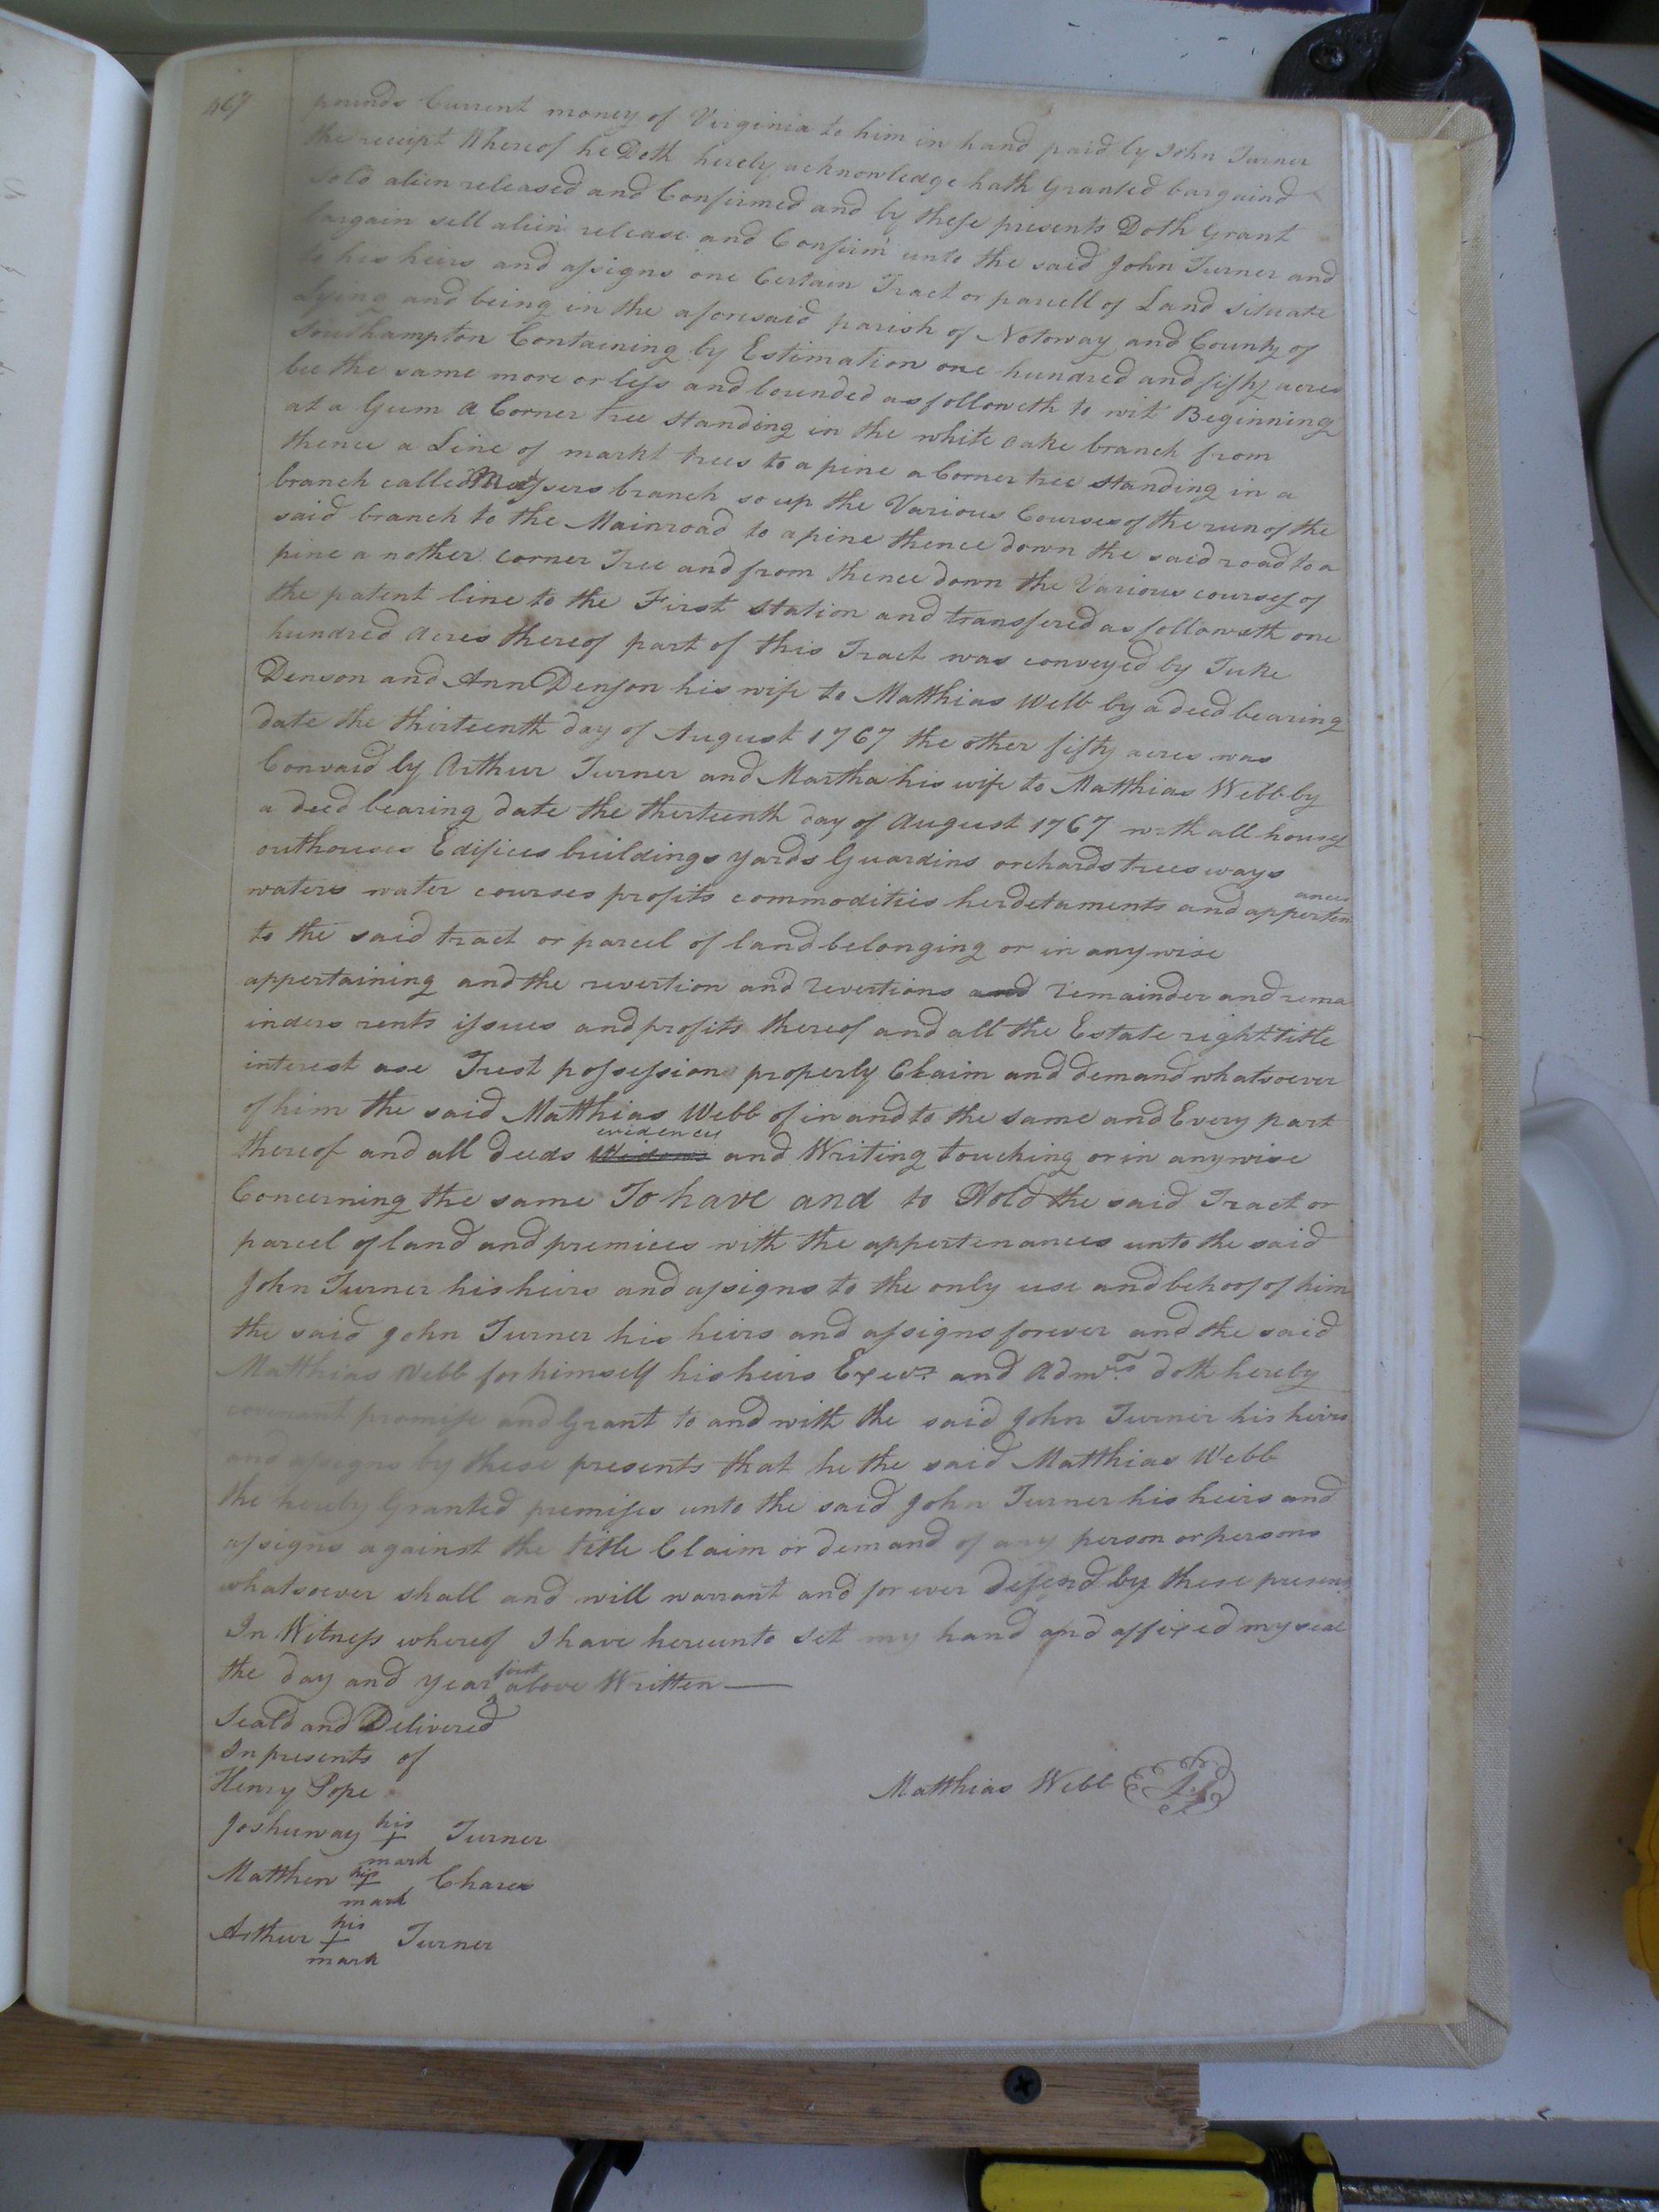 467
pounds Current money of Virginia to him in hand paid by John Turner
the receipt Whereof he Doth hereby acknowledge hath Granted bargaind
sold alien released and Confirmed and by these presents Doth Grant
bargain sell alien release and Confirm unto the said John Turner and
to his heirs and assigns one Certain Tract or parcell of Land situate
Lying and being in the aforesaid parish of Notoway and County of
Southampton Containing by Estimation one hundred and fifty acres
bee the same more or less and bounded as followeth to wit Beginning
at a Gum a Corner tree standing in the white oake branch from
thence a Line of markt trees to a pine a Corner tree standing in a
branch called branch so up the Various Courses of the run of the
said branch to the Mainroad to a pine thence down the said road to a
pine a nother corner Tree and from thence down the Various courses of
the patent line to the First station and transfered as followeth one
hundred acres thereof part of this Tract was conveyed by Tuke
Denson and Ann Denson his wife to Matthias Webb by a deed bearing
date the thirteenth day of August 1767 the other fifty acres was
Convaid by Arthur Turner and Martha his wife to Matthias Webb by
a deed bearing date the therteenth day of August 1767 with all houses
outhouses Edifices buildings yards Guardins orchards trees ways
waters water courses profits commodities herdetaments and appertenances
to the said tract or parcel of land belonging or in anywise
appertaining and the revertion and revertions and remainder and rema
inders rents issues and profits thereof and all the Estate right title
interest use Trust possession property Claim and demand whatsoever
of him the said Matthias Webb of in and to the same and Every part
thereof and all deeds evidences and Writing touching or in anywise
Concerning the same To have and to Hold the said Tract or
parcel of land and premices with the appertenances unto the said
John Turner his heirs and assigns to the only use and behoof of him
the said John Turner his heirs and assigns forever and the said
Matthias Webb for himself his heirs Exers and Admrs doth hereby
covenant promise and Grant to and with the said John Turner his heirs
and assigns by these presents that he the said Matthias Webb
the hereby Granted premises unto the said John Turner his heirs and
assigns against the title Claim or demand of any person or persons
whatsoever shall and will warrant and for ever defend by these presents
In Witness whereof I have hereunto set my hand and affixed my seal
the day and year first above Written
Seald and Delivered
In presents of
Henry Pope
Matthias Webb LS
Joshuway his + mark Turner
Matthew his + mark Charea
Arthur his + mark Turner